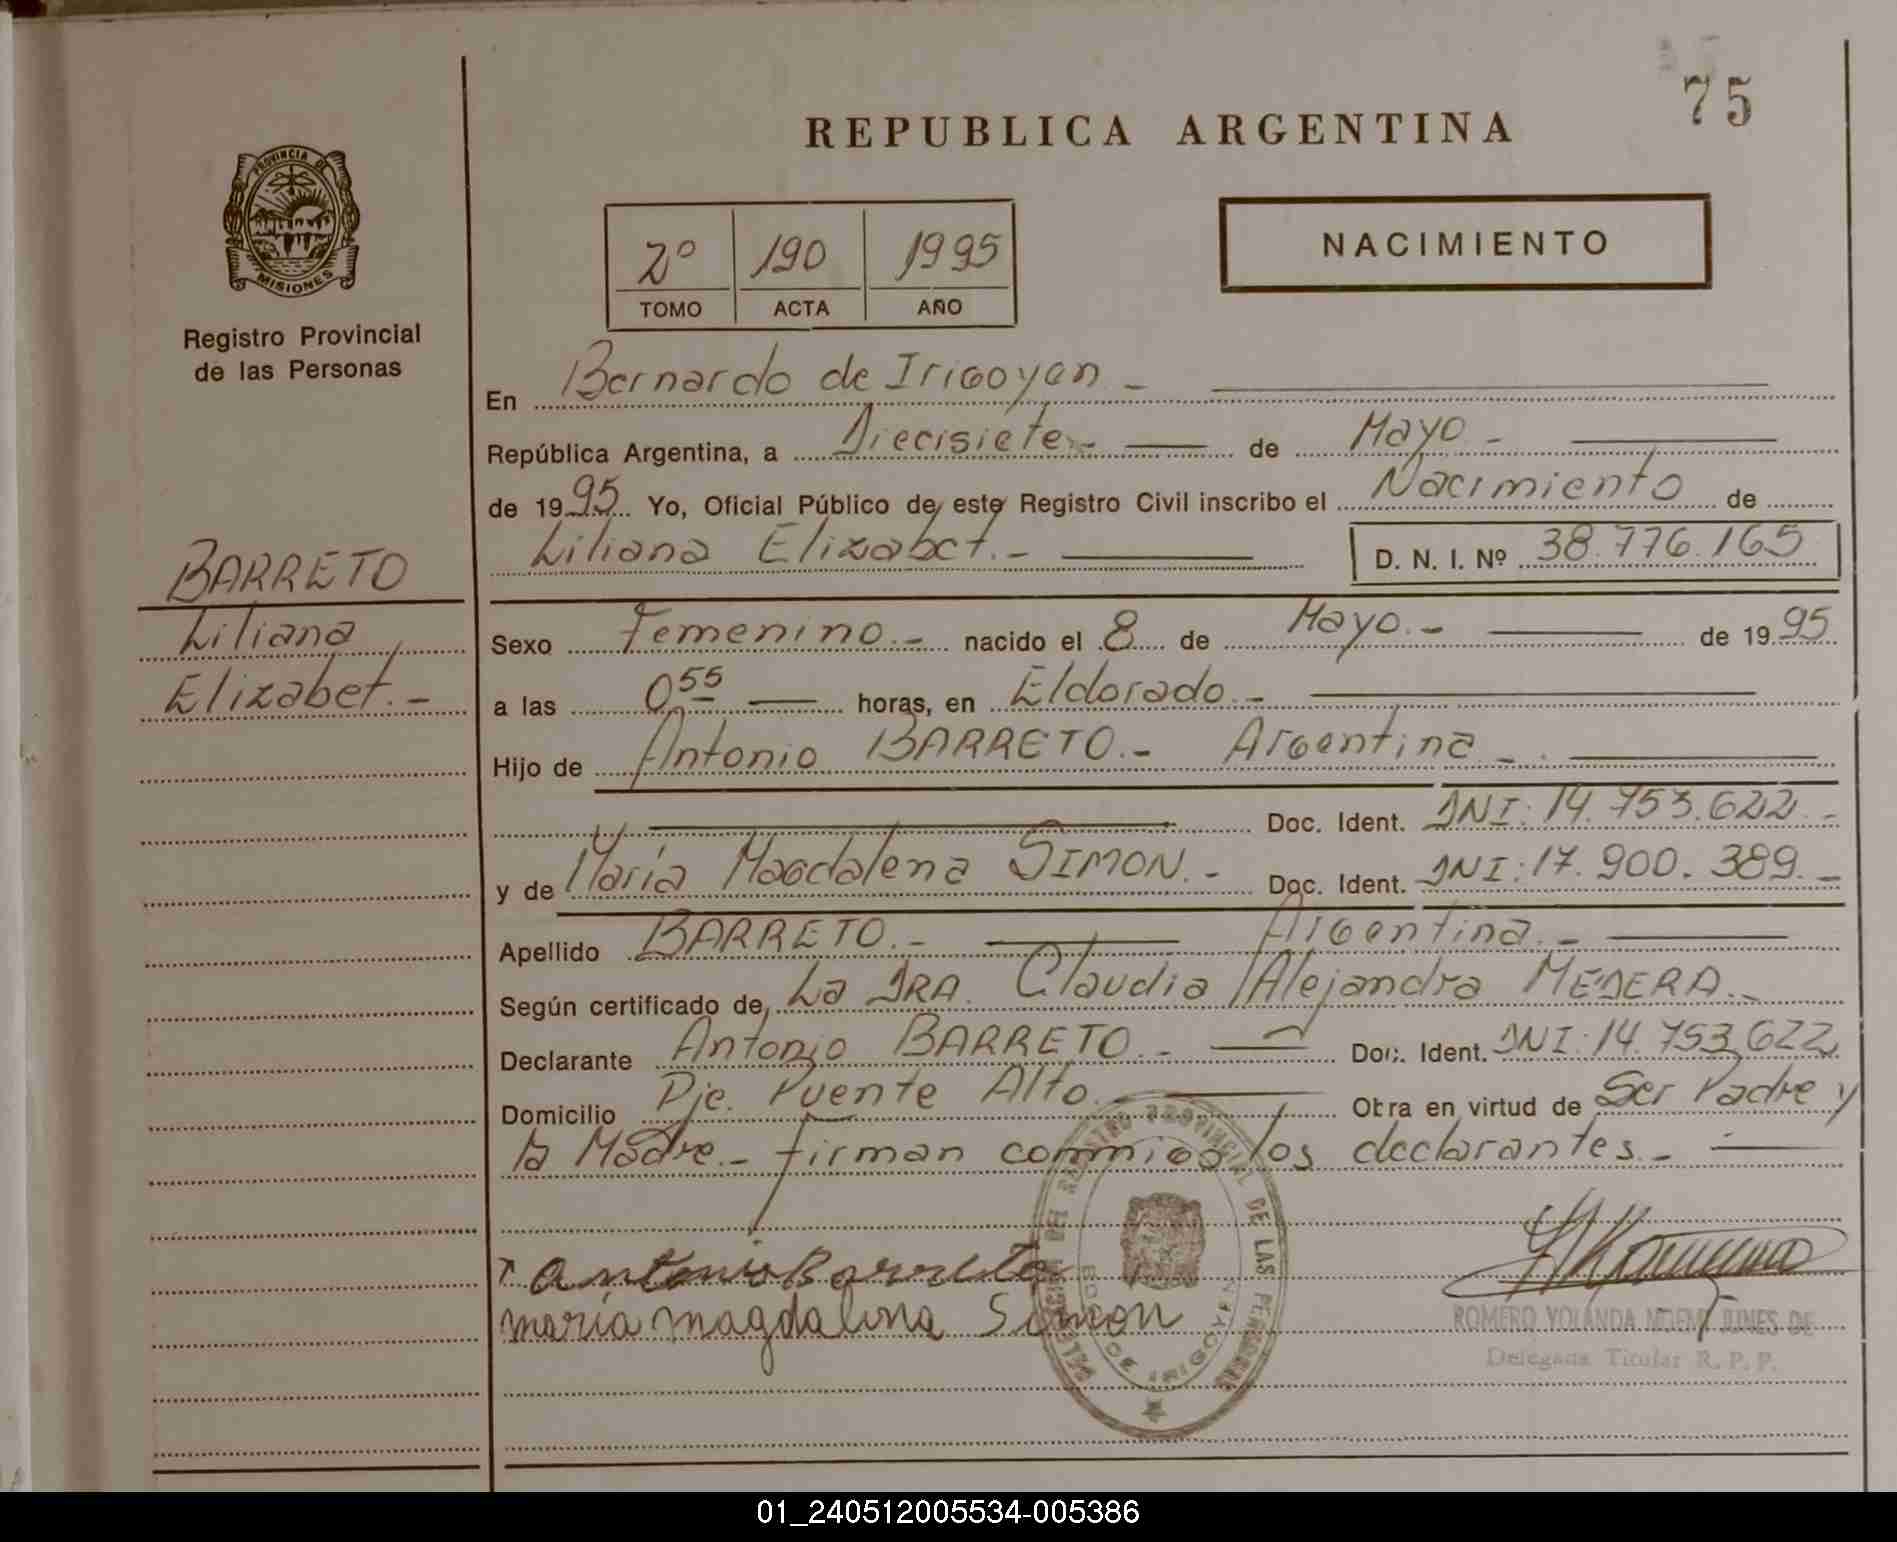 75
REPUBLICA ARGENTINA
PROVINCIA DE
MISIONES
Registro Provincial
de las Personas
2º 190 1995
TOMO ACTA AÑO
NACIMIENTO
En Bernardo de Irigoyen.-
República Argentina, a Diecisiete.- de Mayo.-
de 1995. Yo, Oficial Público de este Registro Civil inscribo el Nacimiento de
Liliana Elizabet.- D. N. I. Nº 38.776.165
BARRETO
Liliana
Elizabet.-
Sexo Femenino.- nacido el 8 de Mayo.- de 1995
a las 0 55 horas, en Eldorado.-
Hijo de Antonio BARRETO.- Argentina.-
Doc. Ident. DNI: 14.753.622.-
y de María Magdalena SIMON.- Doc. Ident. DNI: 17.900.389.-
Apellido BARRETO.- Argentina.-
Según certificado de, La DRA. Claudia Alejandra MEDERA.-
Declarante Antonio BARRETO.- Doc. Ident. DNI: 14.753.622
Domicilio Pje. Puente Alto.- Obra en virtud de Ser Padre y
la Madre.- firman conmigo los declarantes.-
antonio Barreto
maria magdalina Simon
REGISTRO PROVINCIAL DE LAS PERSONAS
BDO. DE IRIGOYEN
ROMERO YOLANDA NOEMI JUNES DE
Delegada Titular R. P. P.
01_240512005534-005386